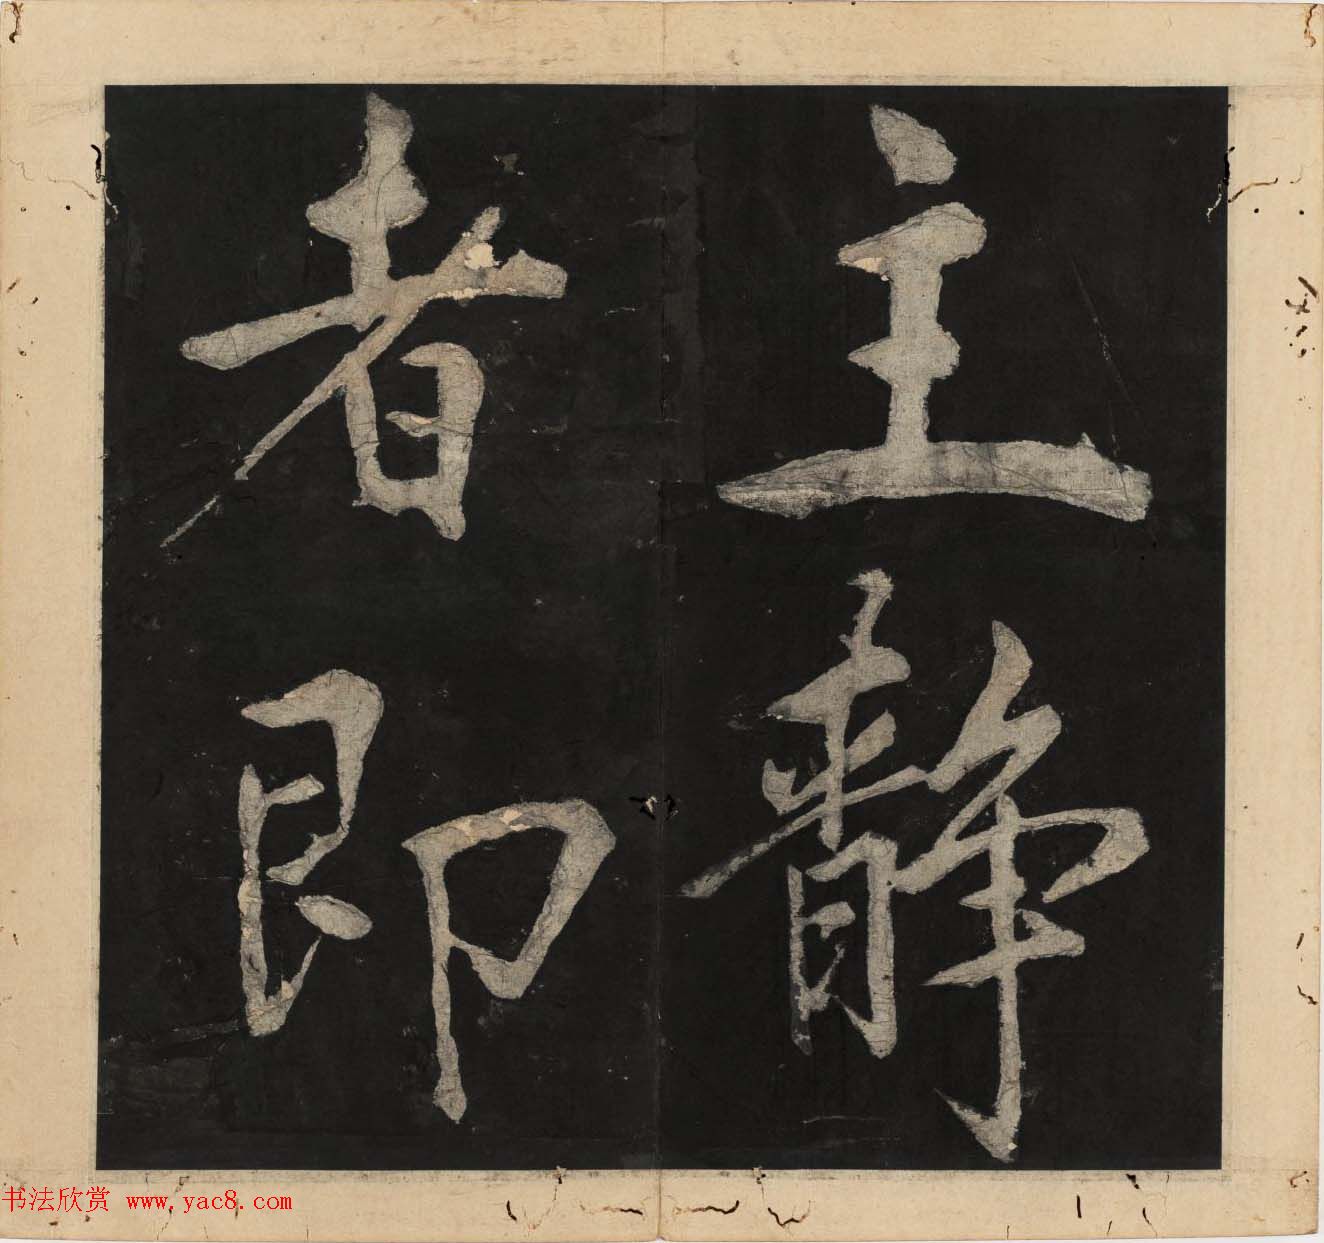 主静
者即
书法欣赏 www.yac8.com